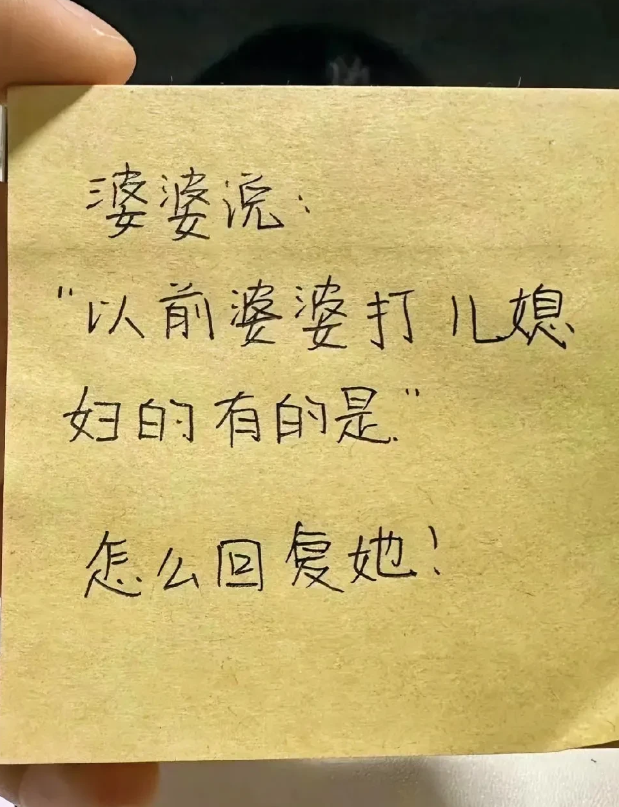 婆婆说:
"以前婆婆打儿媳
妇的有的是."
怎么回复她!